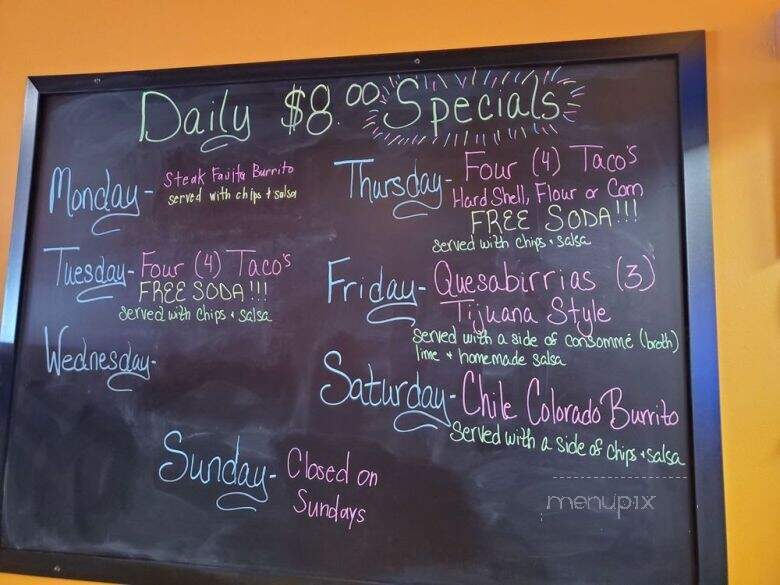 Daily $8.00 Specials
Monday - Steak Fajita Burrito
served with chips + salsa
Tuesday - Four (4) Taco's
FREE SODA!!!
served with chips + salsa
Wednesday -
Thursday - Four (4) Taco's
Hard Shell, Flour or Corn
FREE SODA!!!
served with chips + salsa
Friday - Quesabirrias (3)
Tijuana Style
served with a side of consommé (broth)
lime + homemade salsa
Saturday - Chile Colorado Burrito
Served with a side of chips + salsa
Sunday - Closed on
Sundays
menupix